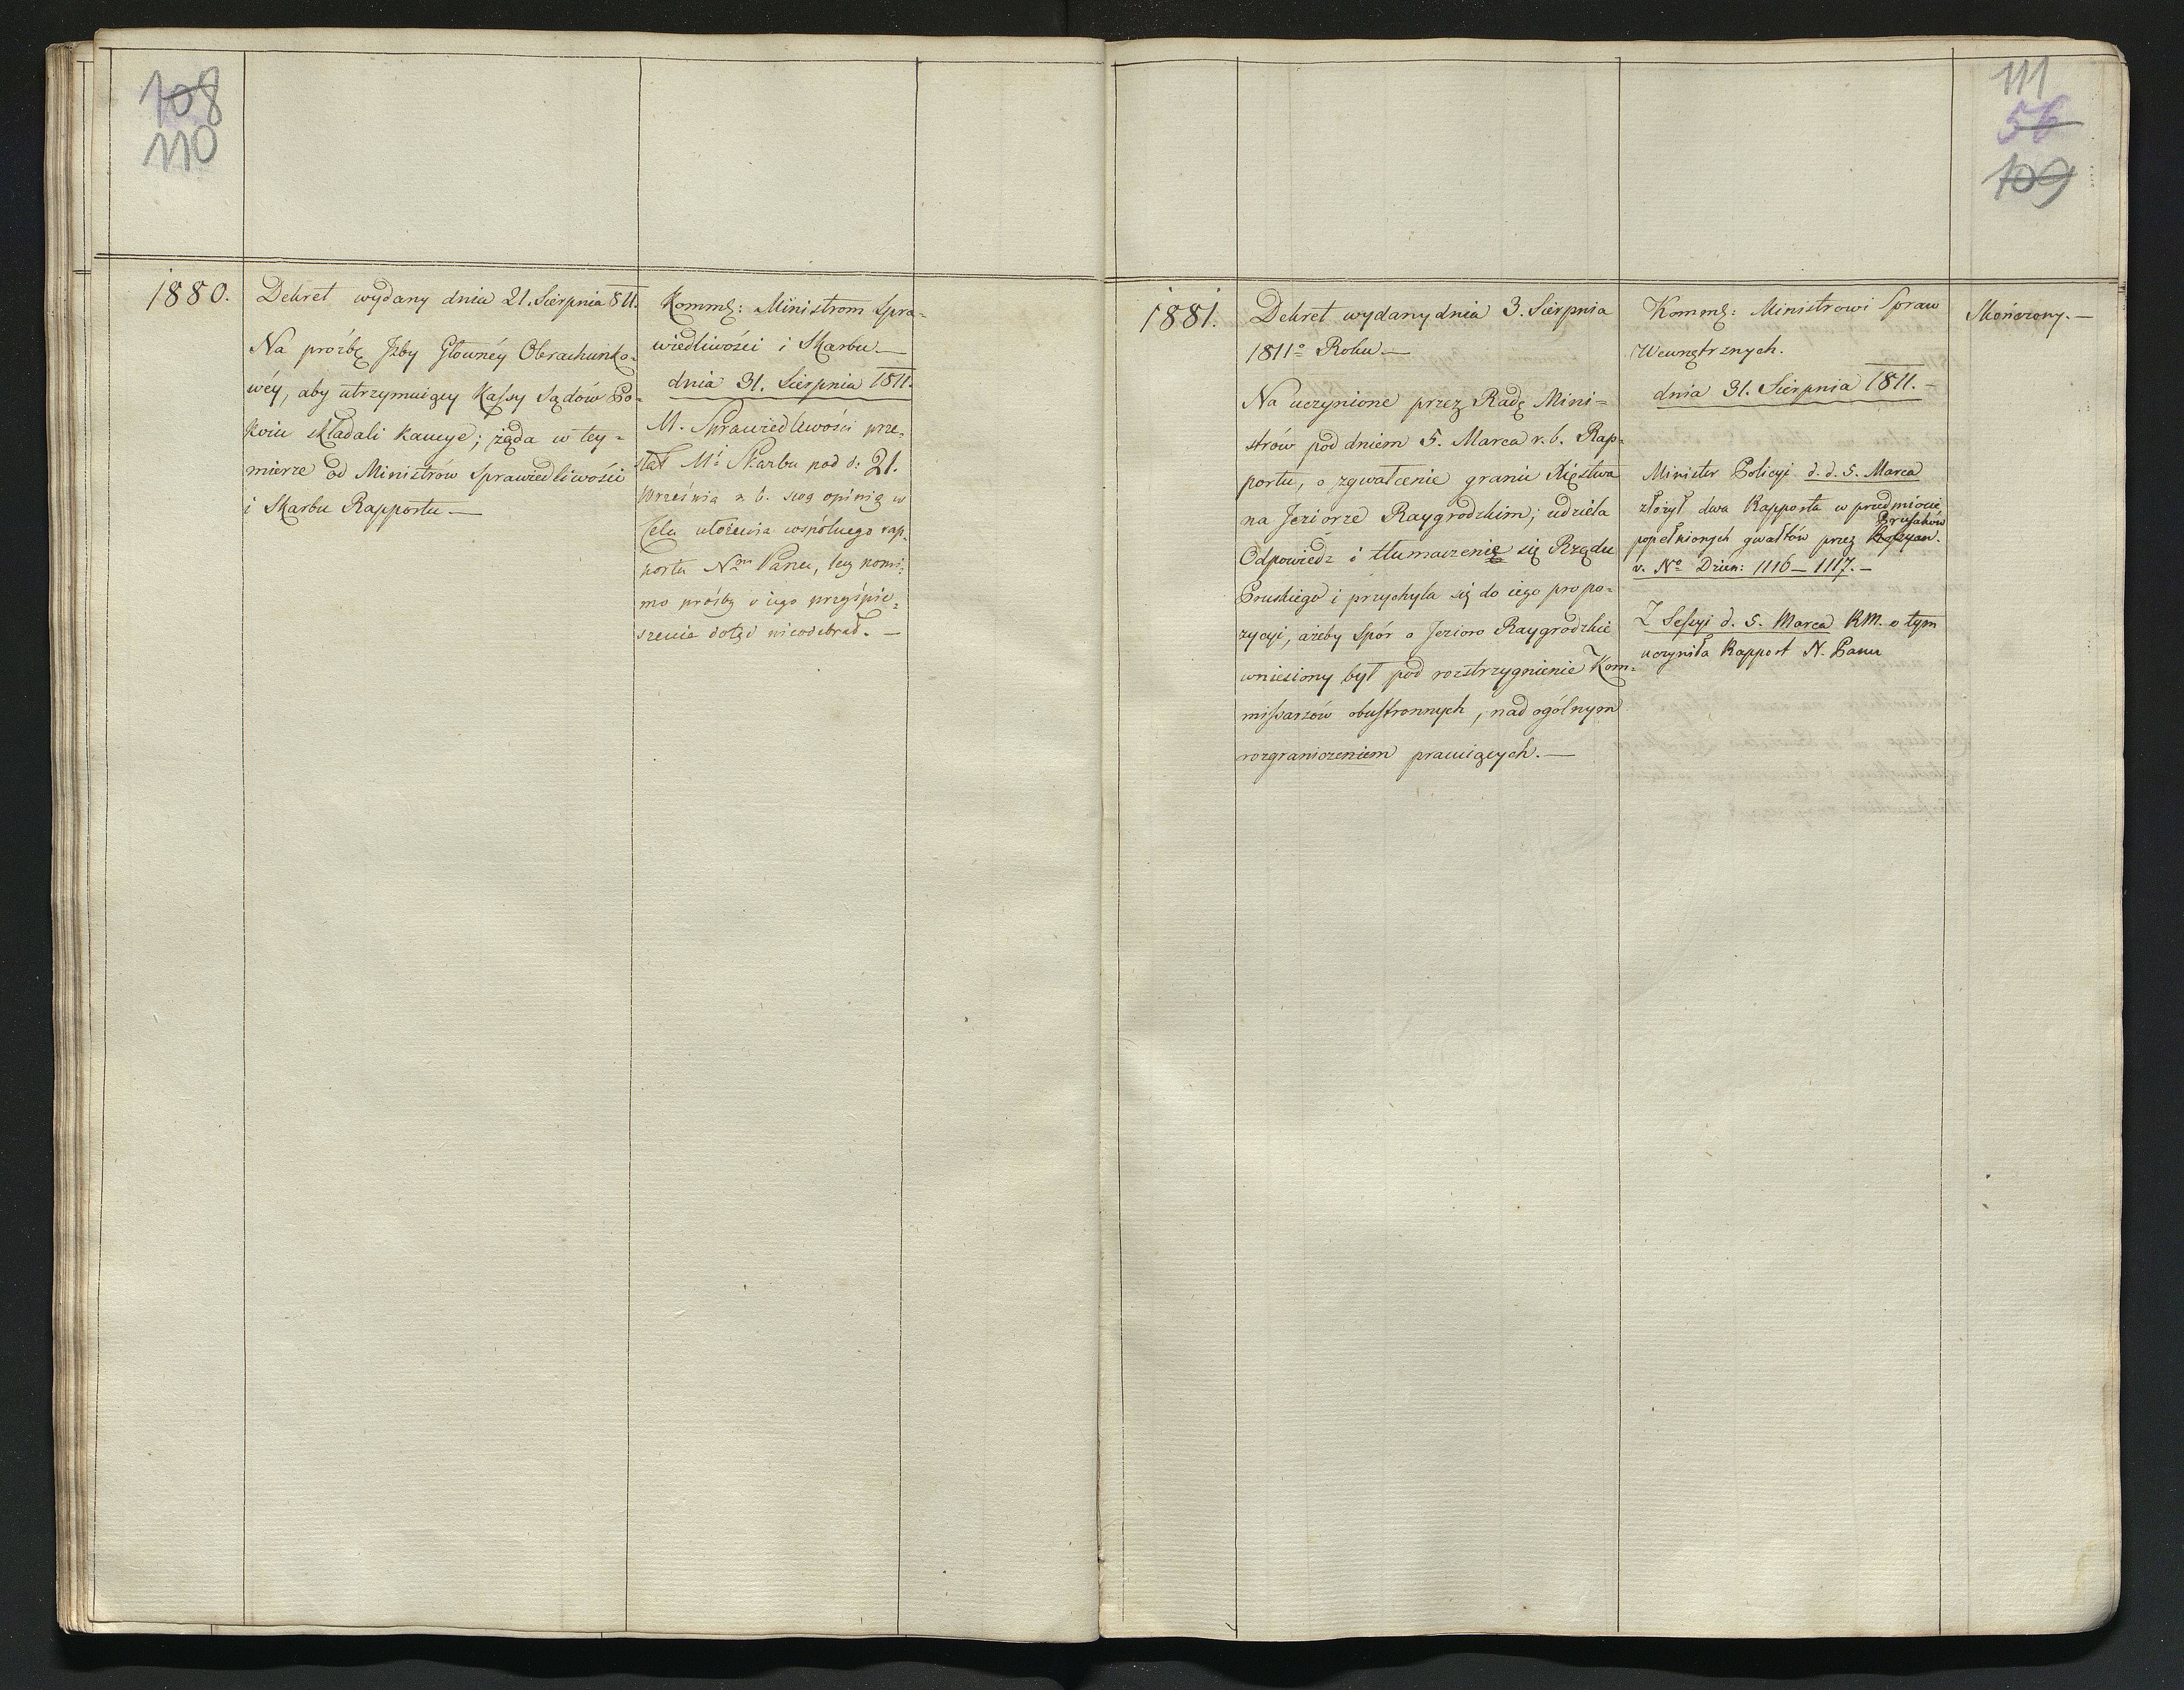 108
110
1880.
Dekret wydany dnia 21. Sierpnia 811.
Na proźbę Jzby Głownéy Obrachunko-
wéy, aby utrzymuiący Kassy Sądów Po-
koiu składali kaucye; żąda w tey-
mierze od Ministrów Sprawiedliwości
i Skarbu Rapportu —
Komm: Ministrom Spra-
wiedliwości i Skarbu —
dnia 31. Sierpnia 1811.
M. Sprawiedliwości prze-
słał Mi Skarbu pod d: 21.
Września r. b. swą opinią w
Celu ułożenia wspólnego rap-
portu Nmu Panu, lecz pomi-
mo prośby o iego przyśpie-
szenie dotąd nieodebrał. —
111
56
109
1881.
Dekret wydany dnia 3. Sierpnia
1811o Roku —
Na uczynione przez Radę Mini-
strów pod dniem 5. Marca r. b. Rap-
portu, o zgwałcenie granic Xięstwa
na Jeziorze Raygrodzkim; udziela
Odpowiedz i tłumaczenie się Rządu
Pruskiego i przychyla się do iego propo-
zycyi, ażeby Spór o Jezioro Raygrodzkie
wniesiony był pod rozstrzygnienie Kom-
missarzów obustronnych, nad ogólnym
rozgraniczeniem pracuiących. —
Komm: Ministrowi Spraw
Wewnętrznych.
dnia 31. Sierpnia 1811. —
Minister Policyi d. d. 5. Marca
złożył dwa Rapporta w przedmiocie
popełnionych gwałtów przez Prusaków
v. No Dzien: 1116 — 1117. —
Z Sessyi d. 5. Marca RM. o tym
uczyniła Rapport N. Panu
Skończony. —